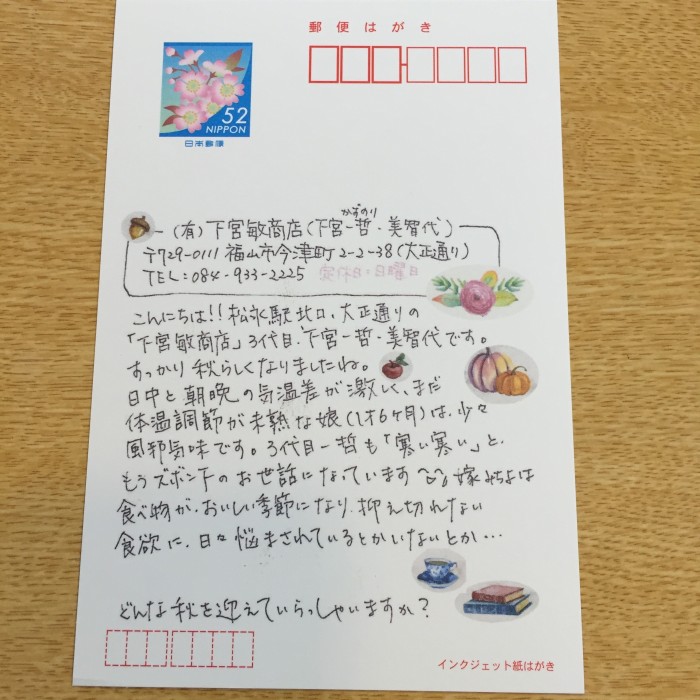 郵便はがき
52
NIPPON
日本郵便
かずのり
(有)下宮敏商店(下宮一哲・美智代)
〒729-0111 福山市今津町2-2-38(大正通り)
TEL:084-933-2225 定休日:日曜日
こんにちは!!松永駅北口、大正通りの
「下宮敏商店」3代目、下宮一哲・美智代です。
すっかり秋らしくなりましたね。
日中と朝晩の気温差が激しく、まだ
体温調節が未熟な娘(1才6ヶ月)は、少々
風邪気味です。3代目一哲も「寒い寒い」と、
もうズボン下のお世話になっています^^;嫁みちよは
食べ物が、おいしい季節になり、抑え切れない
食欲に、日々悩まされているとかいないとか…
どんな秋を迎えていらっしゃいますか?
インクジェット紙はがき